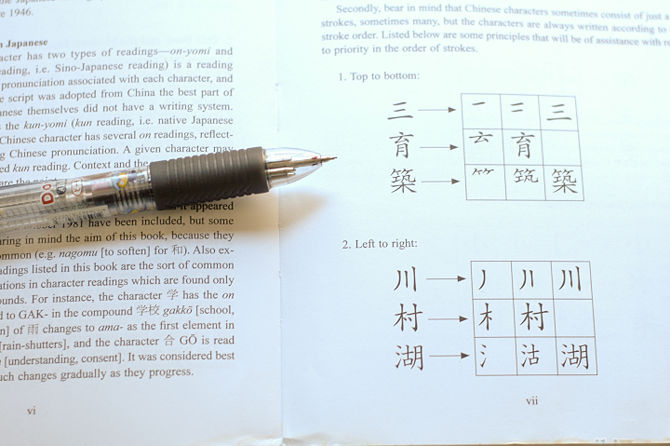 e 1946.
n Japanese
acter has two types of readings—on-yomi and
eading, i.e. Sino-Japanese reading) is a reading
pronunciation associated with each character, and
e script was adopted from China the best part of
anese themselves did not have a writing system.
the kun-yomi (kun reading, i.e. native Japanese
Chinese character has several on readings, reflect-
g Chinese pronunciation. A given character may
ed kun reading. Context and the
it appeared
1981 have been included, but some
aring in mind the aim of this book, because they
ommon (e.g. nagomu [to soften] for 和). Also ex-
adings listed in this book are the sort of common
ations in character readings which are found only
ounds. For instance, the character 学 has the on
d to GAK- in the compound 学校 gakkō [school,
n] of 雨 changes to ama- as the first element in
[rain-shutters], and the character 合 GŌ is read
[understanding, consent]. It was considered best
uch changes gradually as they progress.
vi
Secondly, bear in mind that Chinese characters sometimes consist of just a
strokes, sometimes many, but the characters are always written according to
stroke order. Listed below are some principles that will be of assistance with re
to priority in the order of strokes.
1. Top to bottom:
三 一 二 三
育 𠫓 育
築 𥫗 筑 築
2. Left to right:
川 丿 川
村 木 村
湖 氵 沽 湖
vii